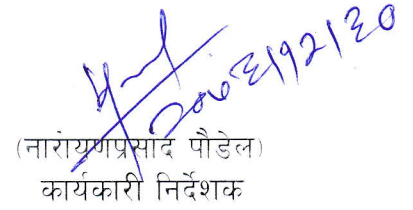 २०७६/१२/३०
(नारायणप्रसाद पौडेल)
कार्यकारी निर्देशक